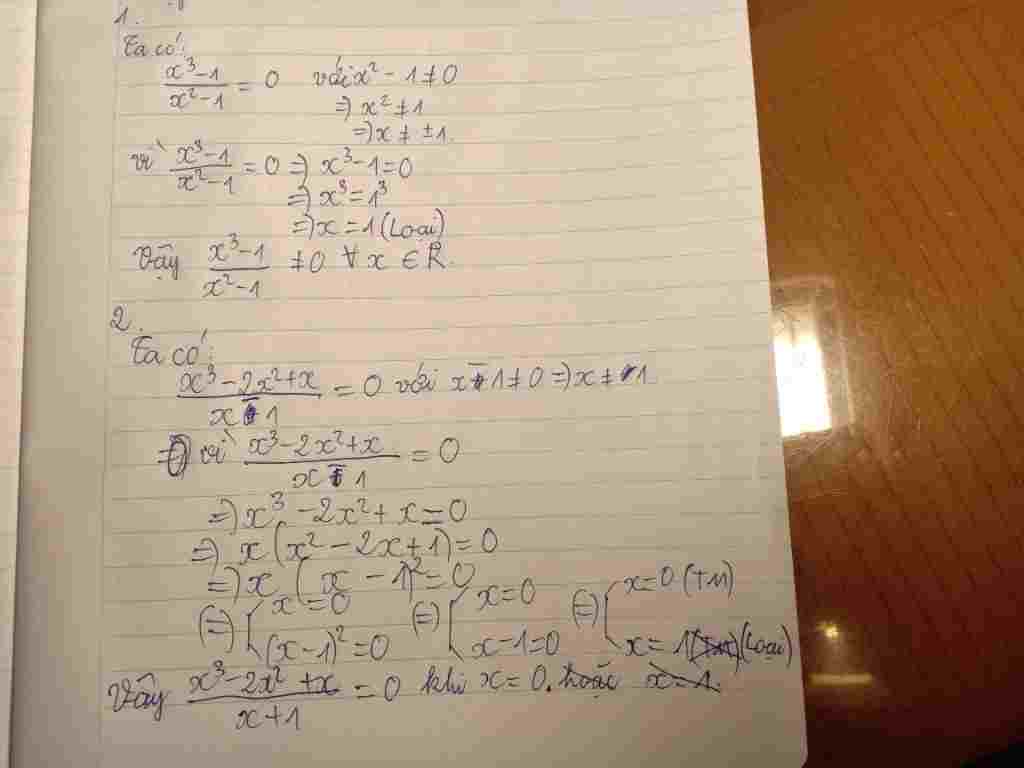 1.
Ta có:
x³-1/x²-1 = 0 với x² - 1 ≠ 0
=) x² ≠ 1
=) x ≠ ±1.
vì x³-1/x²-1 = 0 =) x³-1=0
=) x³ = 1³
=) x = 1 (Loại)
Vậy x³-1/x²-1 ≠ 0 ∀ x ∈ R.
2.
Ta có:
x³-2x²+x/x-1 = 0 với x-1≠0 =) x≠1
vì x³-2x²+x/x-1 = 0
=) x³ -2x²+x=0
=) x(x²-2x+1)=0
=) x (x-1)²=0
(=) [x=0 (=) [x=0 (=) [x=0 (TM)
(x-1)²=0 x-1=0 x=1 (Loại)
Vậy x³-2x²+x/x+1 = 0 khi x=0. hoặc x=1.